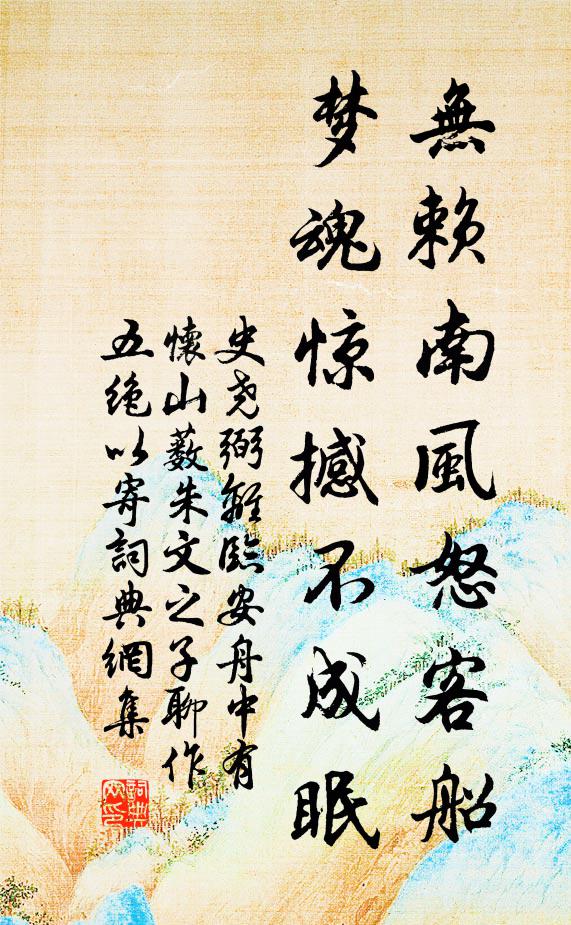 無賴南風怒客船
梦魂惊撼不成眠
史尧弼離臨安舟中有
懷山薮朱文之子聊作
五绝以寄詞典網集